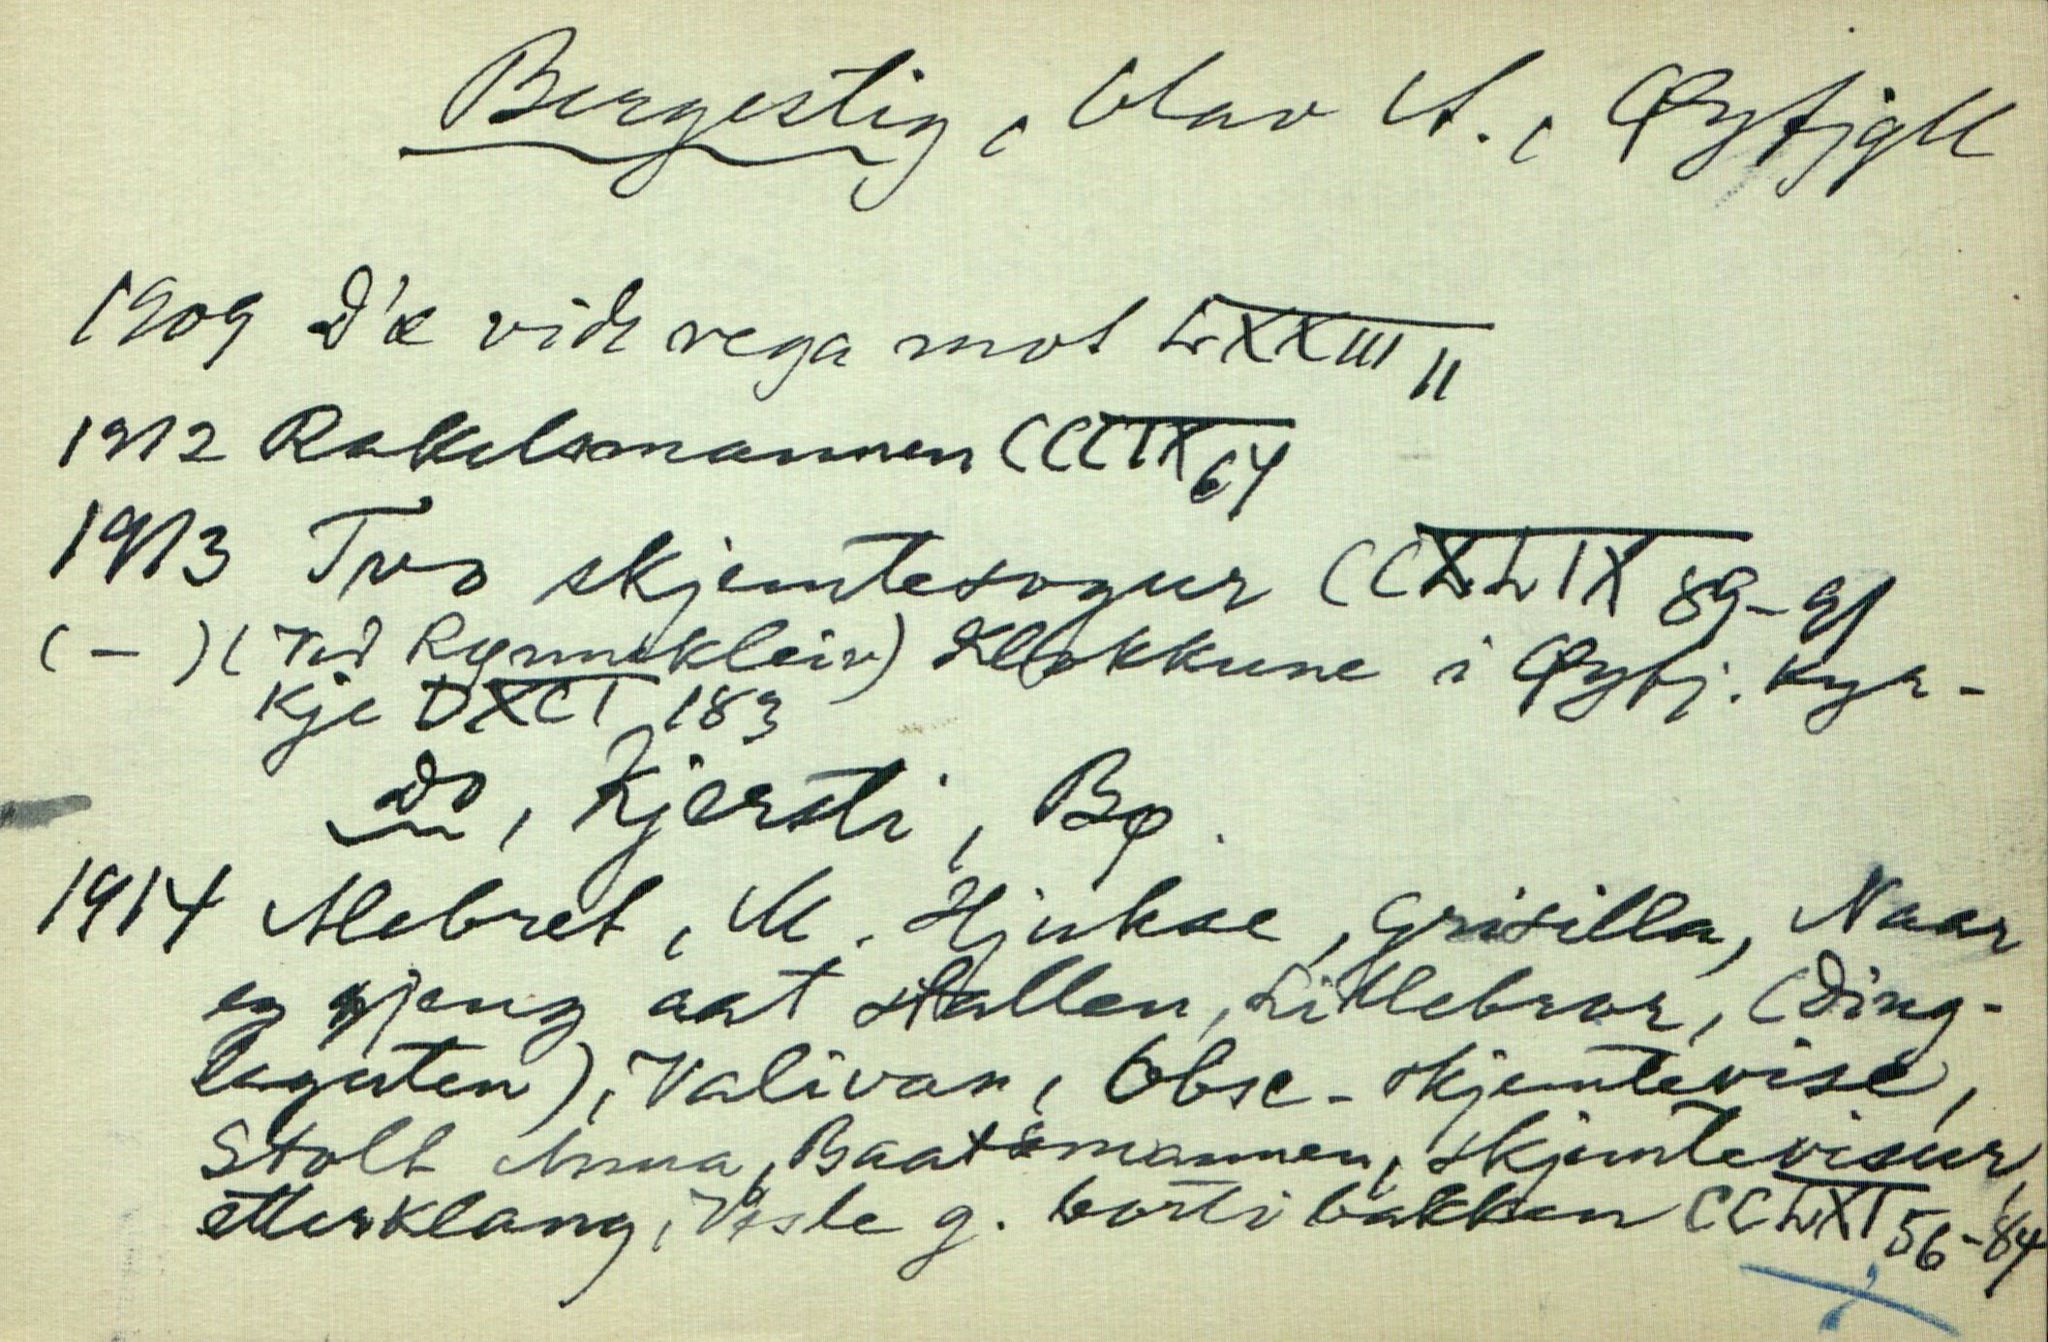 Bergestig, Olav A., Øyfjell
1909 D'æ vidt vega mot LXXIII II
1912 Rakelsmannen CCCIX 64
1913 Tvo skjemtesogur CCXLIX 89-91
(-) (Ved Rynnekleiv) Klokkune i Øyfj. kyr-
kje DXCI 183
Do, Kjersti, Bø.
1914 Alebret, M. Hjukse, Grisilla, Naar
eg gjeng aat stallen, Litlebror, (Ding-
leguten), Valivan, Obse-skjemtevise,
Stolt Anna, Baatsmannen, skjemtevisur,
etterklang, Vesle g. borti bakken CCLXI 56-84